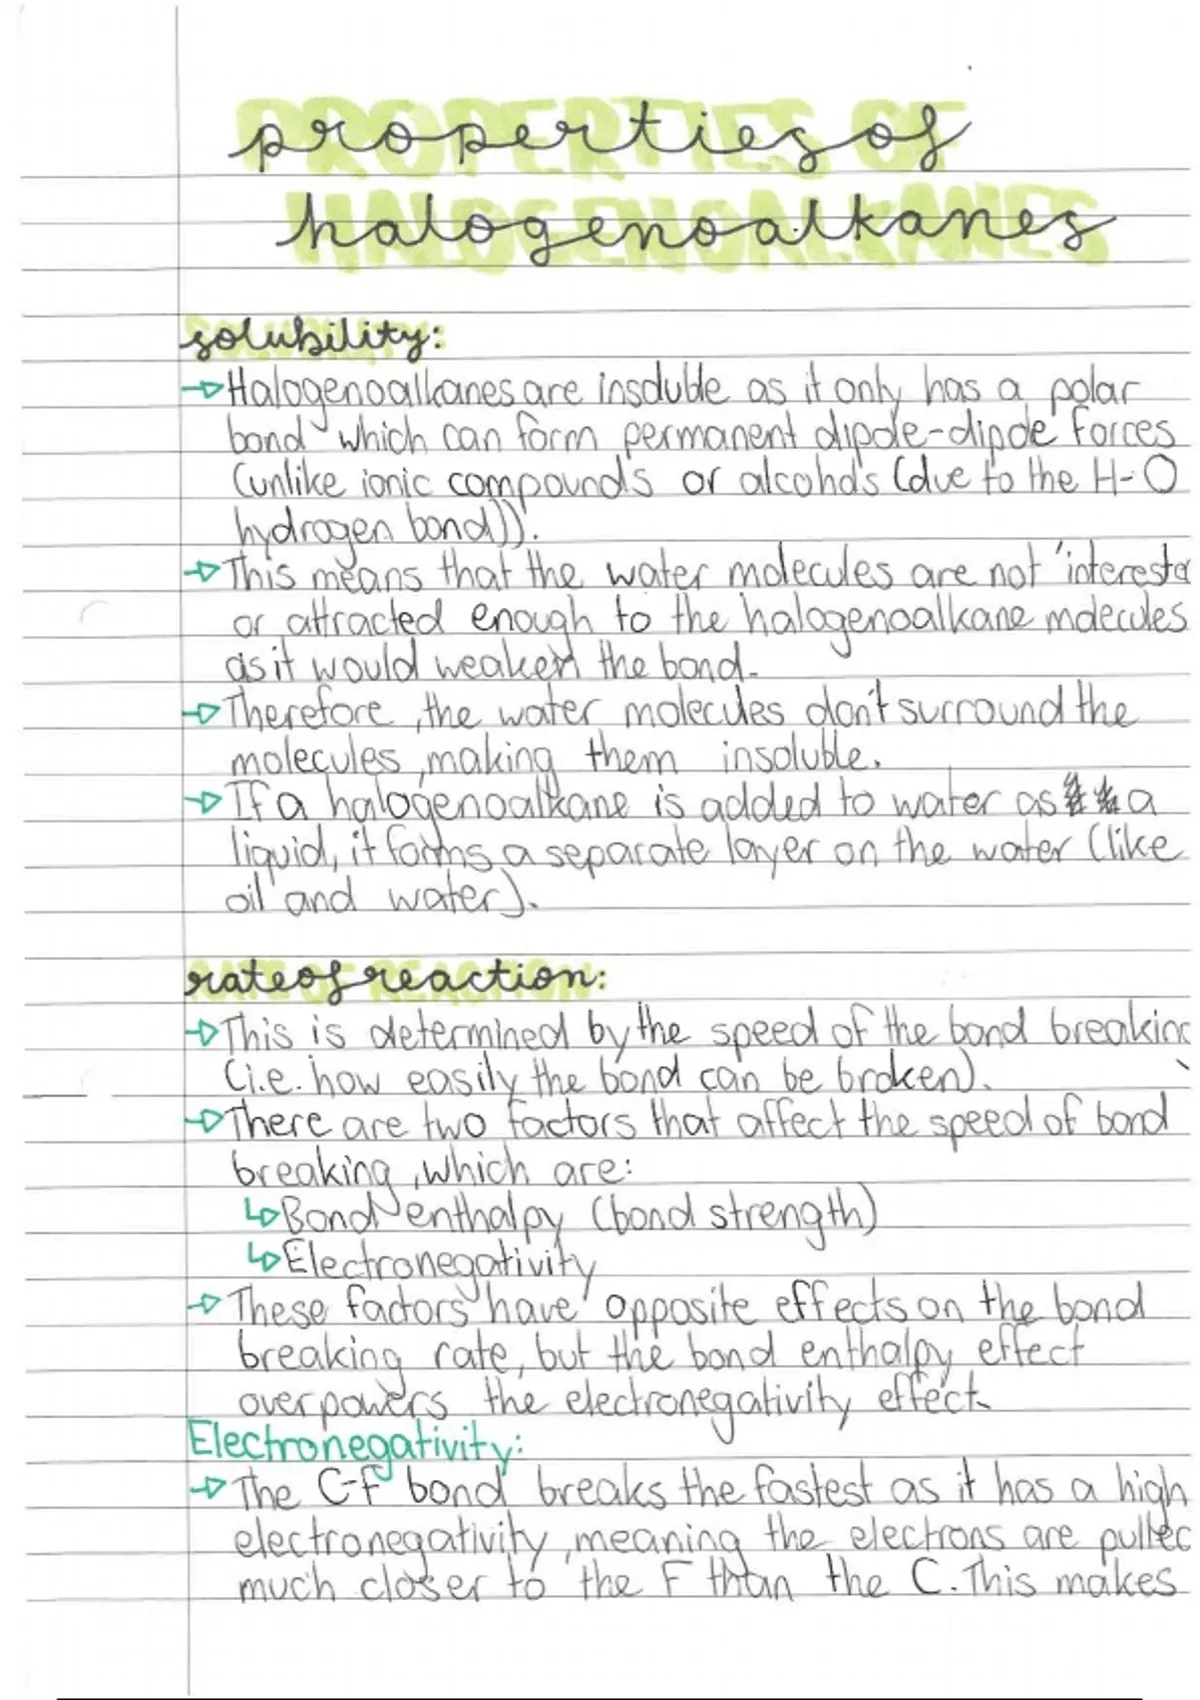 PROPERTIES OF
properties of
HALOGENOALKANES
halogenoalkanes
solubility:
→Halogenoalkanes are insoluble as it only has a polar
bond which can form permanent dipole-dipole forces
(unlike ionic compounds or alcohols (due to the H-O
hydrogen bond)).
→This means that the water molecules are not 'intereste
or attracted enough to the halogenoalkane molecules
as it would weaken the bond.
→Therefore, the water molecules don't surround the
molecules, making them insoluble.
→If a halogenoalkane is added to water as a
liquid, it forms a separate layer on the water (like
oil and water).
RATE OF REACTION:
rate of reaction:
→This is determined by the speed of the bond breaking
(i.e. how easily the bond can be broken).
→There are two factors that affect the speed of bond
breaking, which are:
↳Bond enthalpy (bond strength)
↳Electronegativity
→These factors have opposite effects on the bond
breaking rate, but the bond enthalpy effect
overpowers the electronegativity effect.
Electronegativity:
→The C-F bond breaks the fastest as it has a high
electronegativity, meaning the electrons are pulled
much closer to the F than the C. This makes